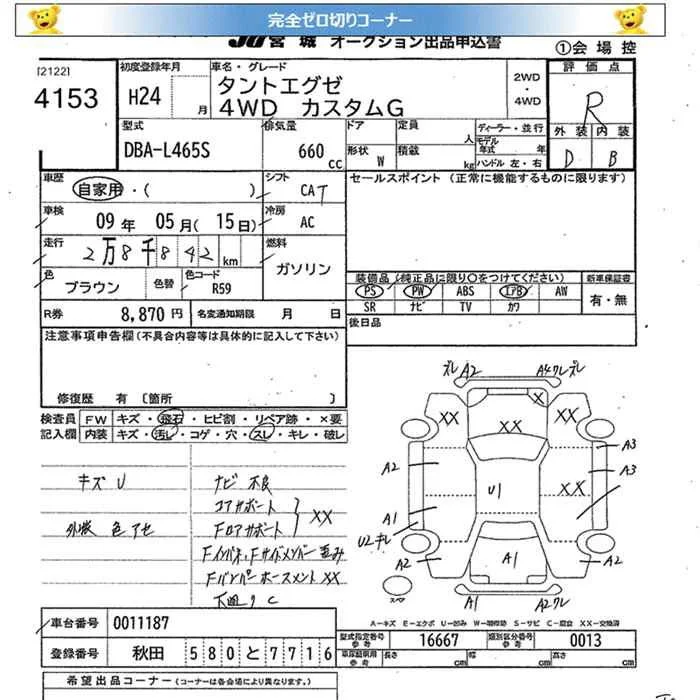 完全ゼロ切りコーナー
JU宮城 オークション出品申込書
①会場控
[2122]
4153
初度登録年月
H24 月
車名・グレード
タントエグゼ
4WD カスタムG
2WD
・
4WD
評価点
R
外装 内装
D B
型式
DBA-L465S
排気量
660 cc
ドア 定員 人
形状 W 積載 kg
ディーラー・並行
モデル年式 年
ハンドル 左・右
車歴
自家用・( )
シフト
CAT
セールスポイント (正常に機能するものに限ります)
車検
09年 05月(15日)
冷房
AC
走行
2万8千842 km
燃料
ガソリン
色
ブラウン
色替
色コード
R59
装備品(純正品に限り○をつけてください)
新車保証書
PS PW ABS エアB AW
有・無
SR ナビ TV カワ
R券 8,870円 名変通知期限 月 日
後日品
注意事項申告欄(不具合内容等は具体的に記入して下さい)
修復歴 有 〔箇所 〕
検査員
記入欄
FW キズ・飛石・ヒビ割・リペア跡・×要
内装 キズ・汚レ・コゲ・穴・スレ・キレ・破レ
キズ U
外装 色アセ
ナビ 不良
コアサポート
Fロアサポート
XX
Fインパネ、Fサイドメンバー 歪み
Fバンパーホースメント XX
下廻り C
ズレ A2
A4クレズレ
XX
XX
X
A3
A3
A2
XX
U1
A1
U2キレ
A2
A1
A2
スペア
A1
A2クレ
A-キズ E-エクボ U-凹み W-補修跡 S-サビ C-腐食 XX-交換済
車台番号 0011187
登録番号 秋田 580と7716
型式指定番号 参考 16667
類別区分番号 参考 0013
長さ cm 幅 cm 高さ cm
希望出品コーナー (コーナーは各会場により異なります。)